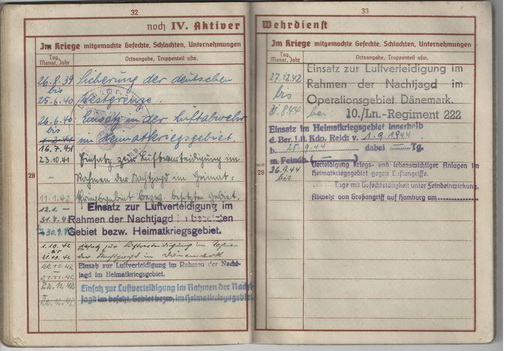 32
noch IV. Aktiver
Im Kriege mitgemachte Gefechte, Schlachten, Unternehmungen
Tag, Monat, Jahr
Ortsangabe, Truppenteil usw.
26.8.39 Sicherung der deutschen
bis
25.6.40 Westgrenze.
26.6.40 Einsatz in der Luftabwehr
im Heimatkriegsgebiet.
16.7.41
23.10.41 Einsatz zur Luftverteidigung im
Rahmen der Nachtjagd im Heimat-
28
11.1.42 kriegsgebiet bezw. besetzten Gebiet.
12.1.
Einsatz zur Luftverteidigung im
Rahmen der Nachtjagd i besetzten
Gebiet bezw. Heimatkriegsgebiet.
1.10.42 Einsatz zur Luftverteidigung im Rahmen
der Nachtjagd in Dänemark
Einsatz zur Luftverteidigung im Rahmen der Nacht-
jagd im Heimatkriegsgebiet.
Einsatz zur Luftverteidigung im Rahmen der Nacht-
jagd im besetzt. Gebiet bezw. im Heimatkriegsgebiet
33
Wehrdienst
Im Kriege mitgemachte Gefechte, Schlachten, Unternehmungen
Tag, Monat, Jahr
Ortsangabe, Truppenteil usw.
27.12.42
bis
Einsatz zur Luftverteidigung im
Rahmen der Nachtjagd im
Operationsgebiet Dänemark.
bei 10./Ln.-Regiment 222
Einsatz im Heimatkriegsgebiet innerhalb
d. Ber. l.ft. Kdo. Reidt v. 1.9.1944
b. 25.9.44 dabei Tg.
m. Feindb.
Verteidigung kriegs- und lebenswichtiger Anlagen im
Heimatkriegsgebiet gegen Luftangriffe.
28
26.9.44
bis
Tage mit Gefechtstätigkeit unter Feindeinwirkung.
Abwehr von Großangriff auf Hamburg am